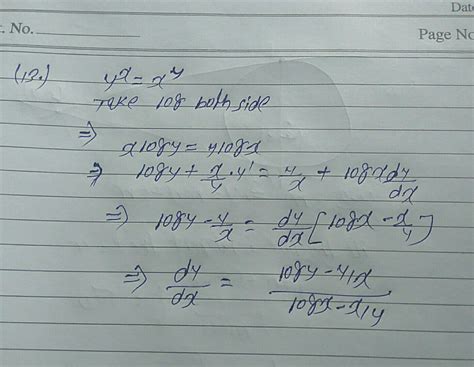 Date
. No.
Page No
(13.) y^x = x^y
Take log both side
⇒
x log y = y log x
⇒ log y + x/y . y' = y/x + log x dy/dx
⇒ log y - y/x = dy/dx [log x - x/y]
⇒ dy/dx = (log y - y/x)/(log x - x/y)